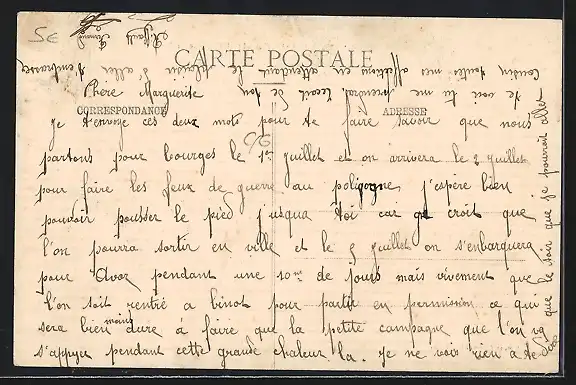 5€
CARTE POSTALE
CORRESPONDANCE
ADRESSE
Chère Marguerite
Je t'envoye ces deux mots pour te faire savoir que nous
partons pour bourges le 1er juillet et on arrivera le 2 juillet
pour faire les feux de guerre au poligogne j'espère bien
pouvoir pousser le pied jusqua toi car je croit que
l'on pourra sortir en ville et le 5 juillet on s'embarquera
pour Avor pendant une 10me de jours mais vivement que
l'on soit rentré a binot pour partir en permission ce qui
sera bien moins dure à faire que la petite campagne que l'on va
s'appuyer pendant cette grande chaleur la. je ne vois rien a te
que le soir que je pourrait aller
te voir tu me prendras
Cousin toutes mes affections en attendant le plaisir d'aller t'embrasser